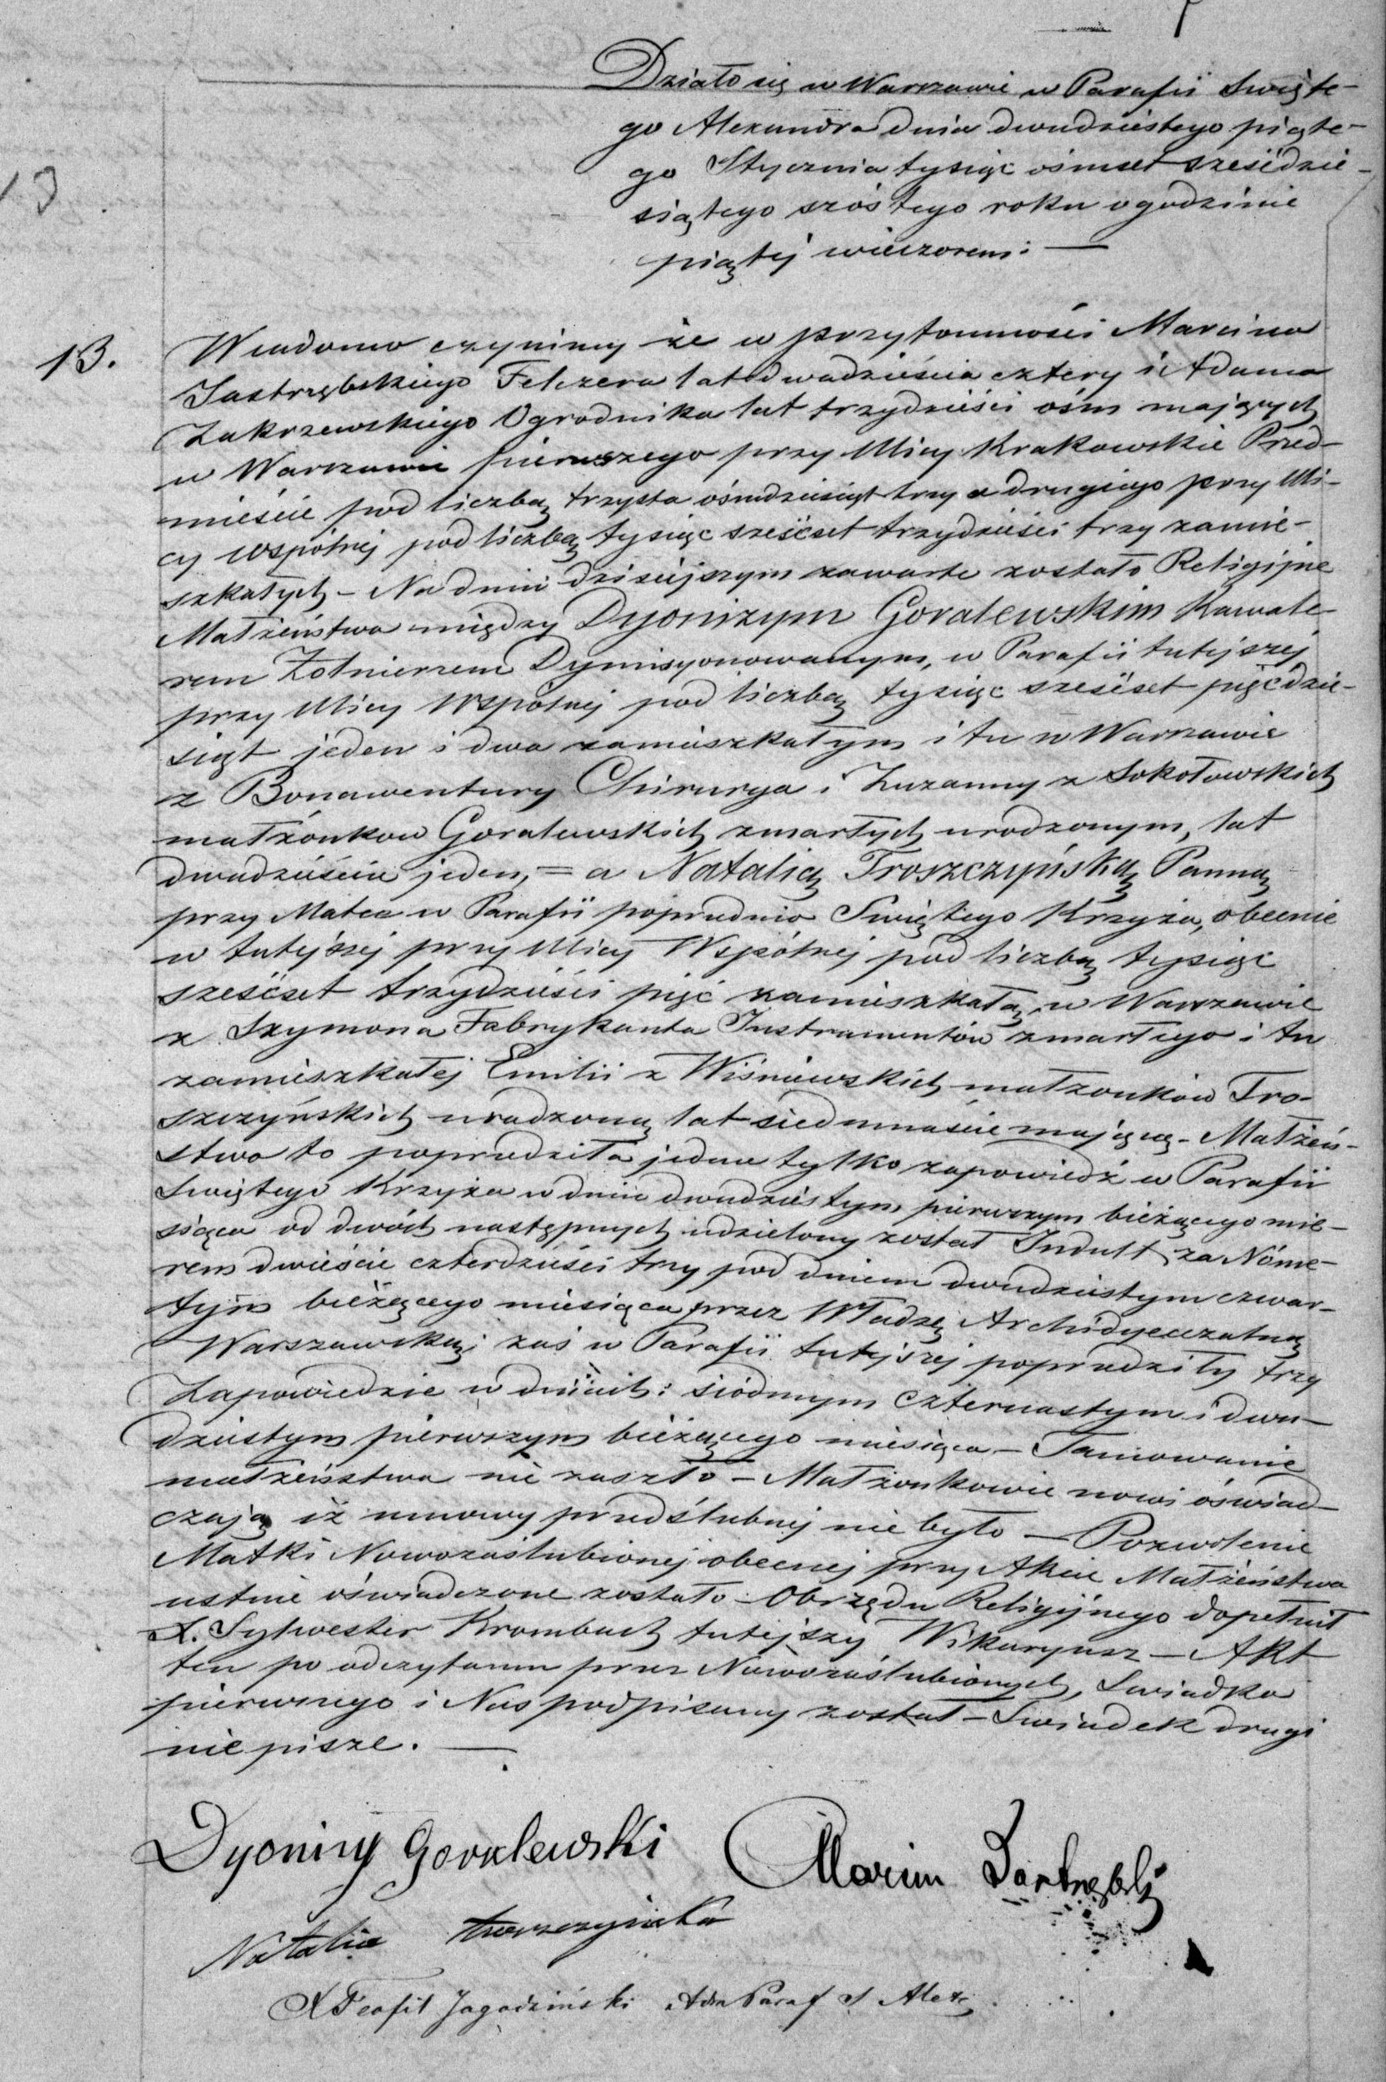 Działo się w Warszawie w Parafii Święte-
go Alexandra dnia dwudziestego piąte-
go Stycznia tysiąc ośmset sześćdzie-
siątego szóstego roku o godzinie
piątej wieczorem: —
13.
Wiadomo czynimy że w przytomności Marcina
Jastrzębskiego Felczera lat dwadzieścia cztery i Adama
Zakrzewskiego Ogrodnika lat trzydzieści ośm mających
w Warszawie pierwszego przy Ulicy Krakowskie Przed-
mieście pod liczbą trzysta ośmdziesiąt trzy a drugiego przy Uli-
cy Wspólnej pod liczbą tysiąc sześćset trzydzieści trzy zamie-
szkałych – Na dniu dzisiejszym zawarte zostało Religijne
Małżeństwo między Dyonizym Goralewskim Kawale-
rem Żołnierzem Dymisyonowanym, w Parafii tutejszej
przy Ulicy Wspólnej pod liczbą tysiąc sześćset pięćdzie-
siąt jeden i dwa zamieszkałym i tu w Warszawie
z Bonawentury Chirurga i Zuzanny z Sokołowskich
małżonków Goralewskich zmarłych urodzonym, lat
dwadzieścia jeden, = a Natalią Troszczyńską Panną
przy Matce w Parafii poprzednio Świętego Krzyża, obecnie
w tutejszej przy Ulicy Wspólnej pod liczbą tysiąc
sześćset trzydzieści pięć zamieszkałą, w Warszawie
z Szymona Fabrykanta Instrumentów zmarłego i tu
zamieszkałej Emilii z Wiśniewskich małżonków Tro-
szczyńskich urodzoną lat siedmnaście mającą – Małżeń-
stwo to poprzedziła jedna tylko zapowiedź w Parafii
Świętego Krzyża w dniu dwudziestym pierwszym bieżącego mie-
siąca od dwóch następnych udzielony został Indult za Nóme-
rem dwieście czterdzieści trzy pod dniem dwudziestym czwar-
tym bieżącego miesiąca przez Władzę Archidyecezalną
Warszawską; zaś w Parafii tutejszej poprzedziły trzy
Zapowiedzie w dniach: siódmym czternastym i dwu-
dziestym pierwszym bieżącego miesiąca – Tamowanie
małżeństwa nie zaszło – Małżonkowie nowi oświad-
czają iż umowy przedślubnej nie było – Pozwolenie
Matki Nowozaślubionej obecnej przy Akcie Małżeństwa
ustnie oświadczone zostało – Obrzędu Religijnego dopełnił
X. Sylwester Krombach tutejszy Wikaryusz – Akt
ten po odczytaniu przez Nowozaślubionych, Świadka
pierwszego i Nas podpisany został – Świadek drugi
nie pisze. —
Dyonizy Goralewski Marcin Jastrzębski
Natalia Troszczyńska
X Teofil Jagodziński Adm Paraf S Alex